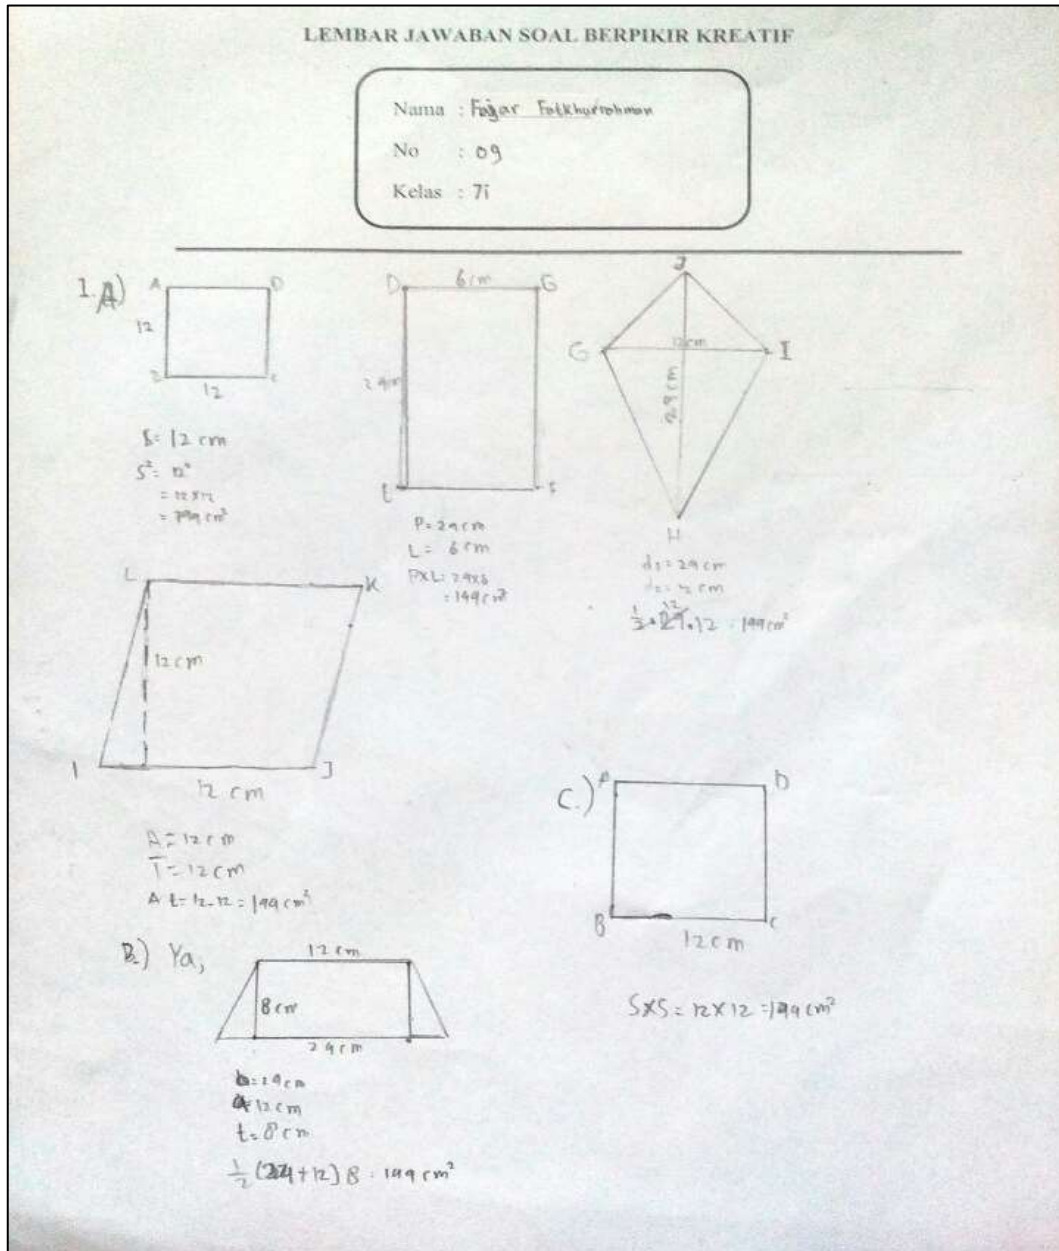 LEMBAR JAWABAN SOAL BERPIKIR KREATIF
Nama : Fajar Fatkhurrohman
No : 09
Kelas : 7i
1. A)
A D
12
12
S = 12 cm
S² = 12²
= 12 x 12
= 144 cm²
D 6 cm G
24 cm
E F
P = 24 cm
L = 6 cm
P x L = 24 x 6
= 144 cm²
J
G 12 cm I
24 cm
H
d1 = 24 cm
½ . 24 . 12 = 144 cm²
12
L K
12 cm
I J
12 cm
A = 12 cm
T = 12 cm
A t = 12 . 12 = 144 cm²
B.) Ya,
12 cm
8 cm
24 cm
b = 24 cm
a = 12 cm
t = 8 cm
½ (24 + 12) 8 = 144 cm²
C.)
A D
B C
12 cm
S x S = 12 x 12 = 144 cm²